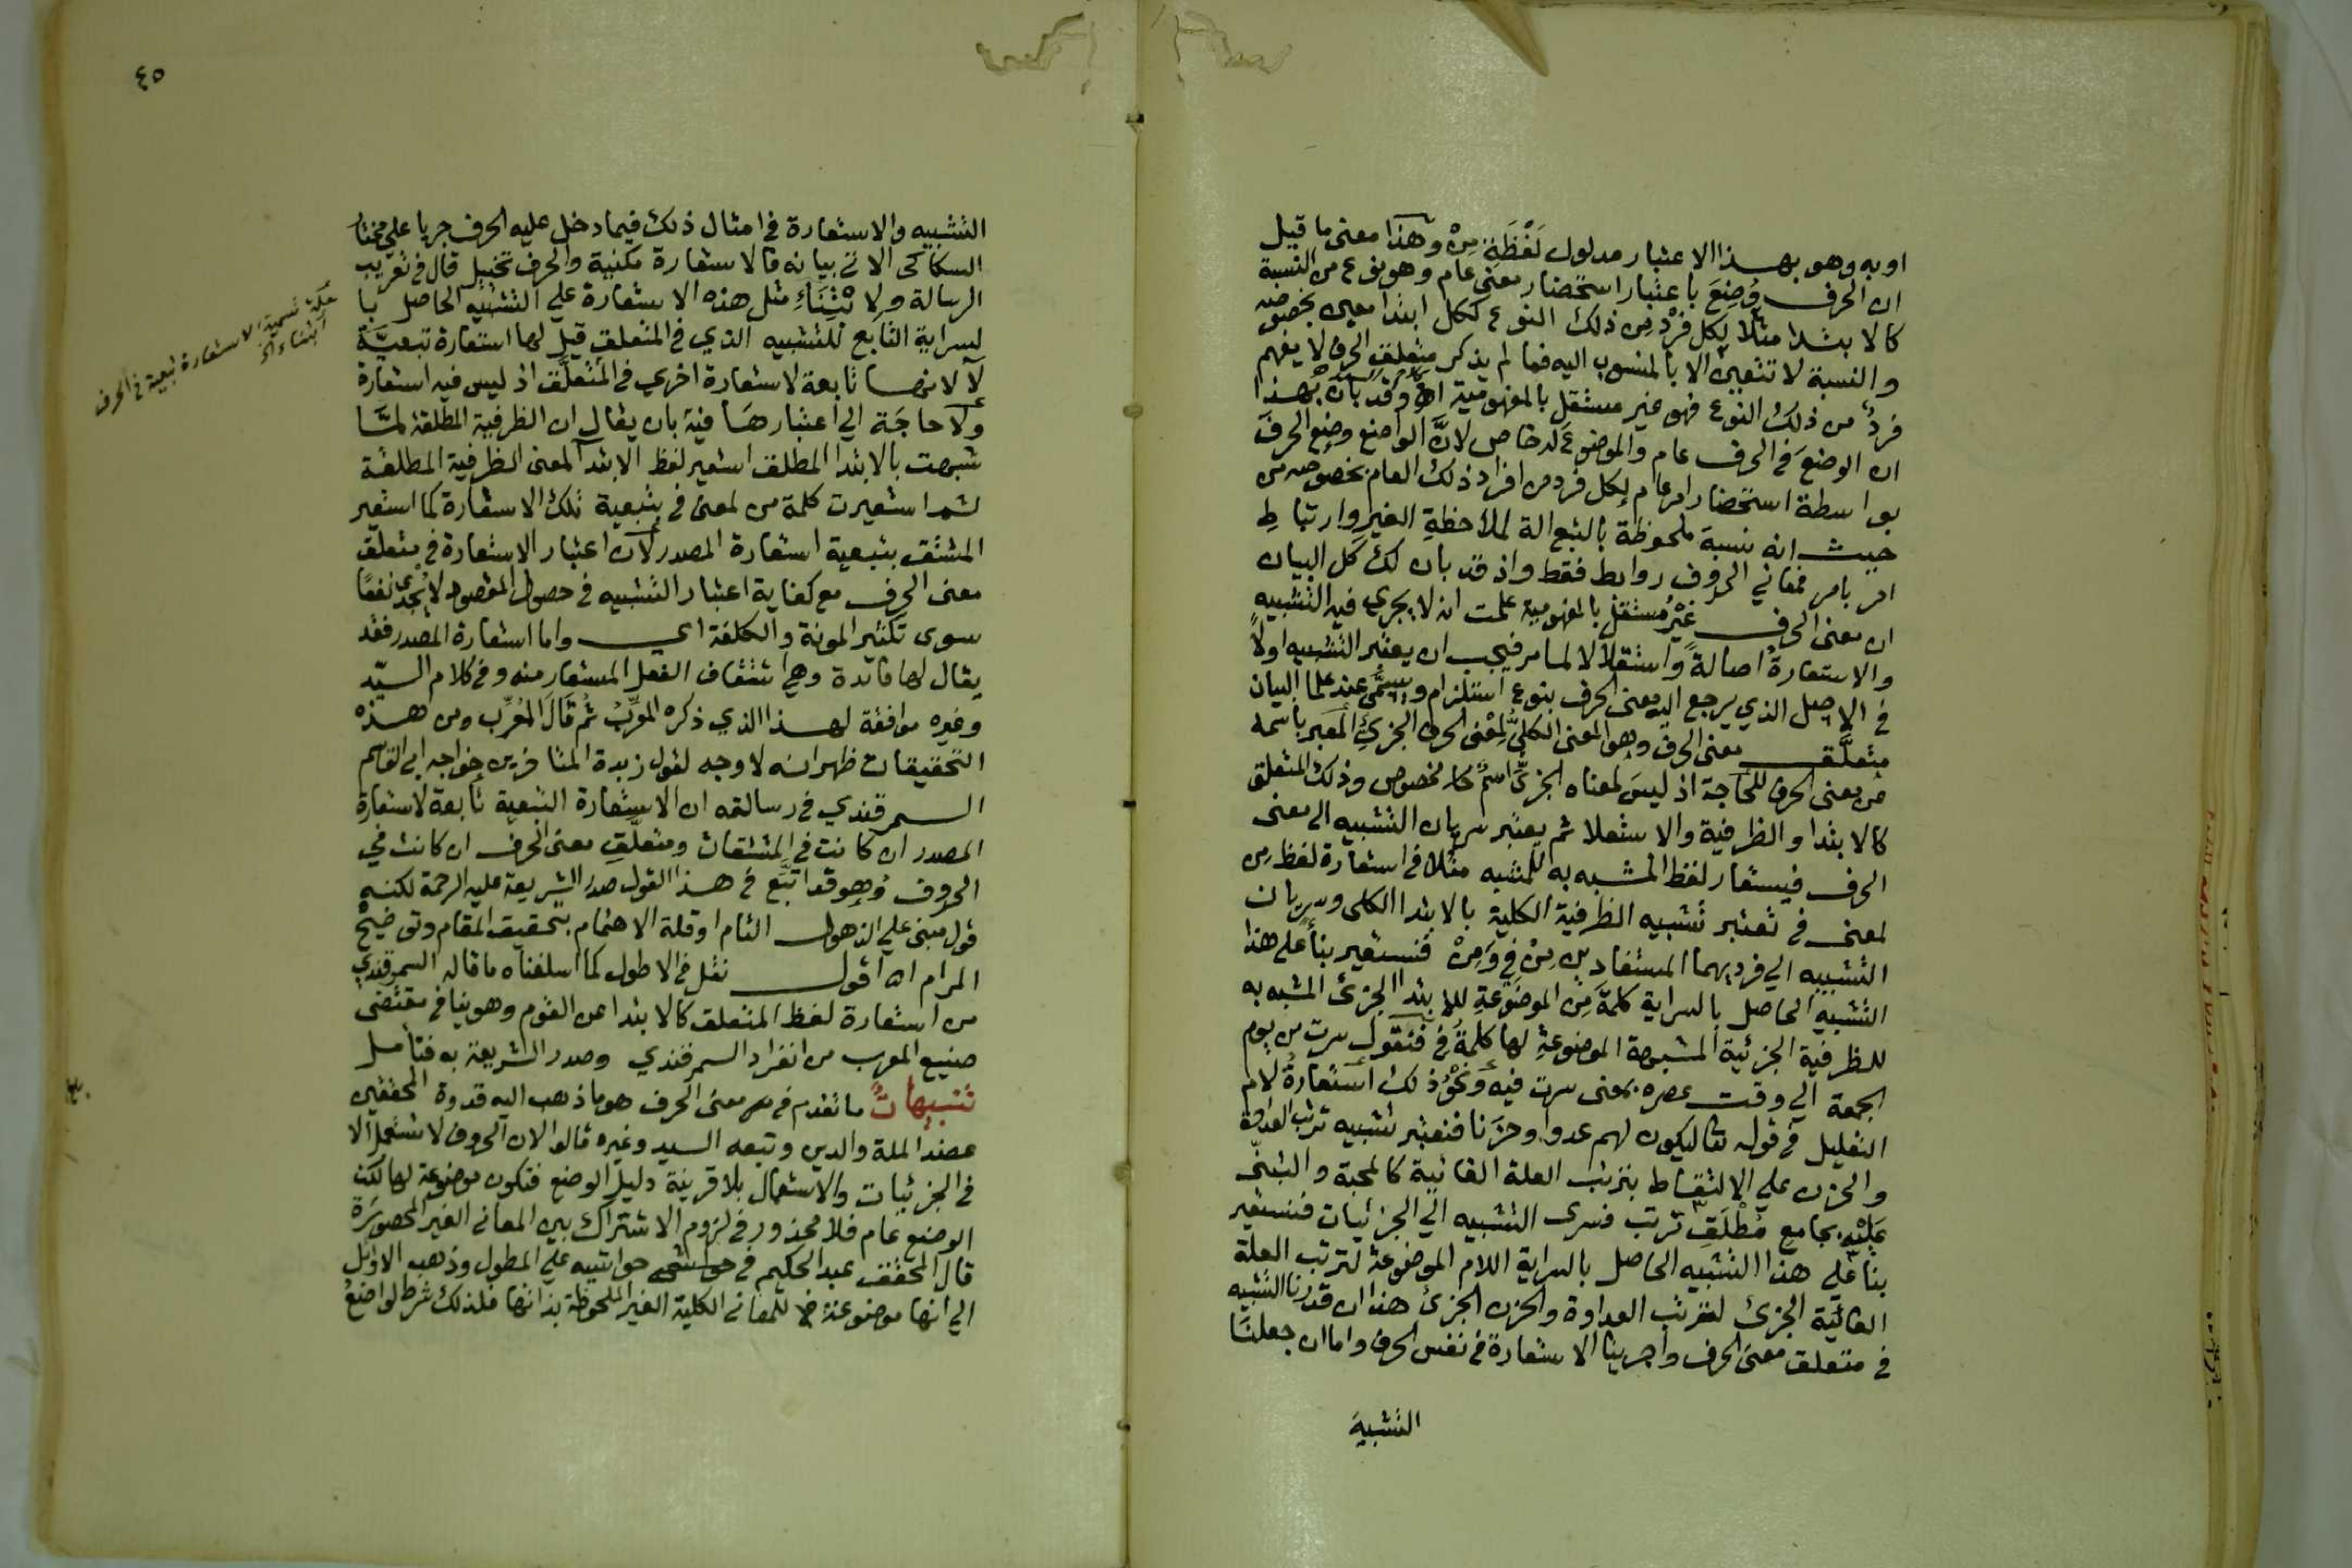 اوبه وهو بهذا الاعتبار مدلول لَفْظَةِ مِنْ وهذا معنى ما قيل
ان الحرف وُضِعَ باعتبار استحضار معنى عام وهو نوع من النسبة
كالابتدا مثلا لكل فرْد من ذلك النوع ككل ابتدا معين بخصوصه
والنسبة لا تتعين الا بالمنسوب اليه فما لم يذكر متعلق الحرف لا يفهم
فردٌ من ذلك النوع فهو غير مستقل بالمفهومية اه وقد بان بهذا
ان الوضعَ في الحرف عام والموضوع له خاص لانَّ الواضع وضع الحرف
بواسطة استحضار امر عام لكل فرد من افراد ذلك العام بخصوصه من
حيث انه نسبة ملحوظة بالتبع الة لملاحظةِ الغير وارتباطِ
امر بامر فمعاني الحروف روابط فقط واذ قد بان لك كل البيان
ان معنى الحرف غيْرُ مستقل بالمفهومية علمت انه لا يجري فيه التشبيه
والاستعارةُ اصالةً واستقلالا لما مر فيجب ان يعتبر التشبيه اولاً
في الاصل الذي يرجع اليه معنى الحرف بنوع استلزام ويسمَّى عند علما البيان
متعلَّق معنى الحرف وهو المعنى الكليُّ لمعْنى الحرف الجزئيِّ المعبر باسمه
عن معنى الحرف للحاجة اذ ليسَ لمعناه الجزئيّ اسمٌ خاص مخصوص وذلك المتعلق
كالابتدا والظرفية والاستعلا ثم يعتبر سريان التشبيه الى معنى
الحرف فيستعار لفظ المشبه به للمشبه مثلا في استعارة لفظ من
لمعنى في تعتبر تشبيه الظرفية الكلية بالابتدا الكلى وسريان
التشبيه الي فرديهما المستفاد من مِنْ فِي وَمِنْ فتستعير بناً على هذا
التشبيه الحاصل بالسراية كلمةَ مِن الموضوعةِ للابتدا الجزئ المشبه به
للظرفية الجزئية المشبهة الموضوعةِ لها كلمةُ في فتقول سرت من يوم
الجمعة الي وقت عصره بمعنى سرت فيه ونحْوُ ذلك استعارةُ لام
التعليل في قوله تعا ليكون لهم عدوا وحزنا فتعتبر تشبيه ترتب العداوة
والحزن علي الالتقاط بترتب العلة الغائية كالمحبة والتبنّى
عَليْه بجامع مُطْلَقِ ترتب فسرى التشبيه الي الجزئيات فتستعير
بناً علي هذا التشبيه الحاصل بالسراية اللام الموضوعة لترتب العلة
الغائيّة الجزئ لترتب العداوة والحزن الجزئ هذا ان قدرنا التشبيه
في متعلق معنى الحرف واجرينا الاستعارة في نفس الحرف واما ان جعلنَا
التشبيهَ
٤٥
التشبيه والاستعارة في امثال ذلك فيما دخل عليه الحرف جريا علي مختار
السكاكي الاتي بيانه فالاستعارة مكنية والحرف تخييل قال في تعريب
الرسالة ولابْتِنَاءِ مثل هذه الاستعارة علي التشبيه الحاصل با
لسراية التابع للتشبيه الذي في المتعلق قيل لها استعارة تبعيَّة
لا لانها تابعة لاستعارة اخري في المتعلَّق اذ ليس فيه استعارة
ولا حاجَة الي اعتبارهَا فيه بان يقال ان الظرفية المطلقة لمَّا
شبهت بالابتدا المطلق استعير لفظ الابتدا لمعنى الظرفية المطلقة
ثم استعيرت كلمة من لمعنى في بتبعية تلك الاستعارة كما استعير
المشتق بتبعية استعارة المصدر لان اعتبار الاستعارة في متعلق
معنى الحرف مع كفاية اعتبار التشبيه في حصول المقصود لا يُجدى نفعًا
سوى تكثير المونة والكلفة اي واما استعارة المصدر فقد
يقال لها فائدة وهي اشتقاق الفعل المستعار منه وفي كلام السيّد
وغيره موافقة لهذا الذي ذكره المعرِّبُ ثم قَالَ المُعَرِّب ومن هذه
التحقيقات ظهر انه لا وجه لقول زبدة المتاخرين خواجه ابي القاسم
السمرقندي في رسالته ان الاستعارة التبعية تابعة لاستعارة
المصدر ان كانت في المشتقات ومتعلَّقِ معنى الحرف ان كانت في
الحروف وُهوَ قد اتبَع في هذا القول صدر الشريعة عليه الرحمة لكنه
قول مبنى علي الذهول التام او قلة الاهتمام بتحقيق المقام وتوضيح
المرام اه اقول نقل في الاطول كما اسلفناه ما قاله السمرقندي
من استعارة لفظ المتعلق كالابتدا عن القوم وهو ينافي مقتضى
صنيع المعرب من انفراد السمرقندي وصدر الشريعة به فتامل
تنبيهاتٌ ما تقدم في معنى الحرف هو ما ذهب اليه قدوة المحققين
عضد الملة والدين وتبعه السيد وغيره قالوا لان الحروف لا تستعمل الا
في الجزئيات والاستعمال بلا قرينة دليل الوضع فتكون موضوعة لها لكن
الوضع عام فلا محذور في لزوم الاشتراك بين المعاني الغير المحصورَة
قال المحقق عبد الحكيم في حواشيه علي المطول وذهب الاوايل
الي انها موضوعة للمعاني الكلية الغير الملحوظة بذاتها فلذلك شرط الواضعُ
علّة تسمية الاستعارة تبعية في الحرف